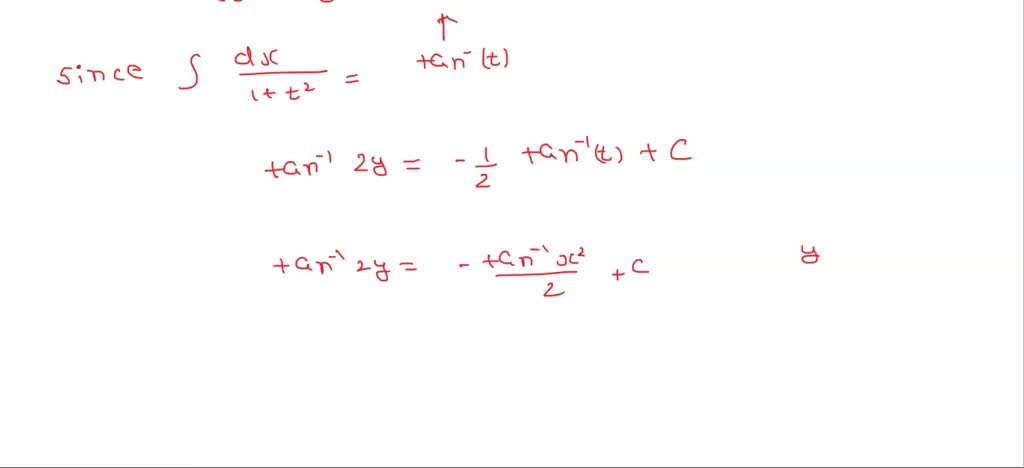 ↑
since ∫ dx / (1 + t²) = tan⁻(t)
tan⁻¹ 2y = - 1/2 tan⁻¹(t) + C
tan⁻¹ 2y = - tan⁻¹ x² / 2 + C y